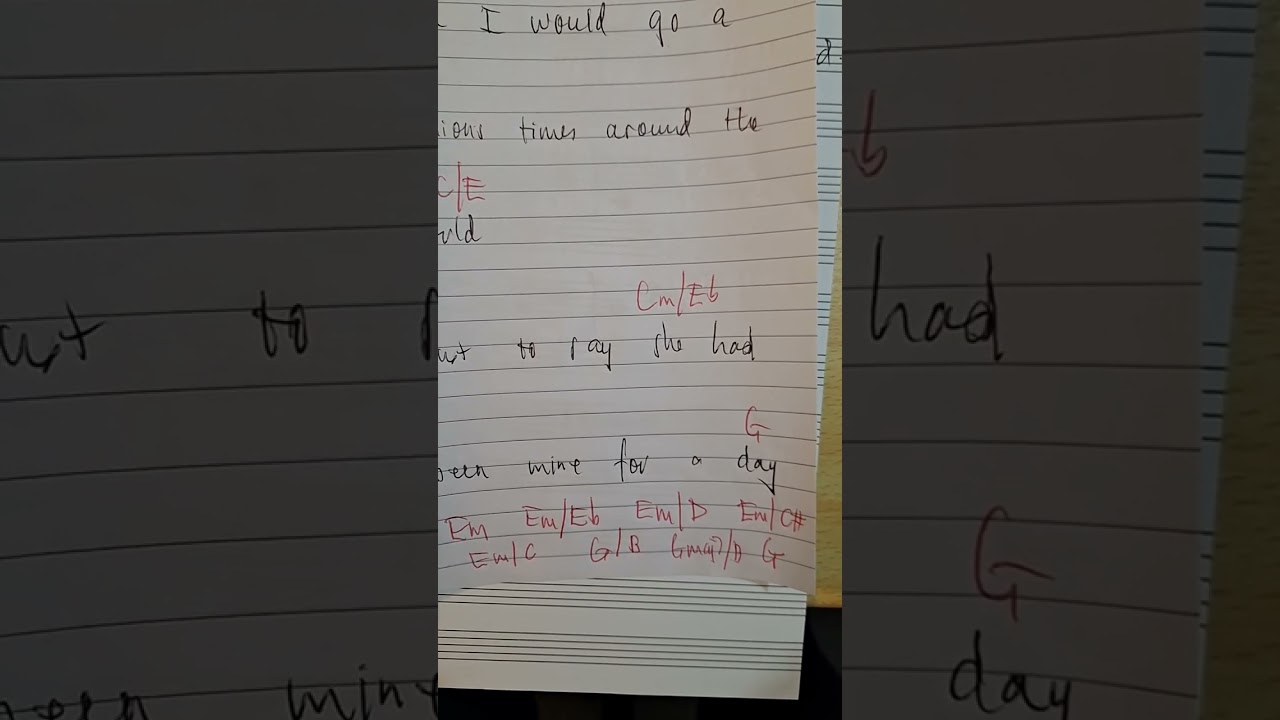 I would go a
ious times around the
C/E
uld
Cm/Eb
to say she had
G
been mine for a day
Em Em/Eb Em/D Em/C#
Em/C G/B Gmaj7/D G